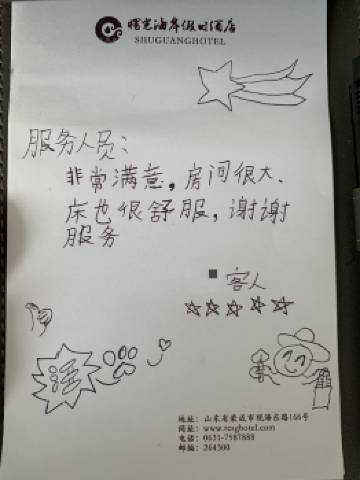 曙光海岸假日酒店
SHUGUANGHOTEL
服务人员：
非常满意，房间很大、
床也很舒服，谢谢
服务
客人
地址：山东省荣成市观海东路166号
网址：www.rcsghotel.com
电话：0631-7587888
邮编：264300